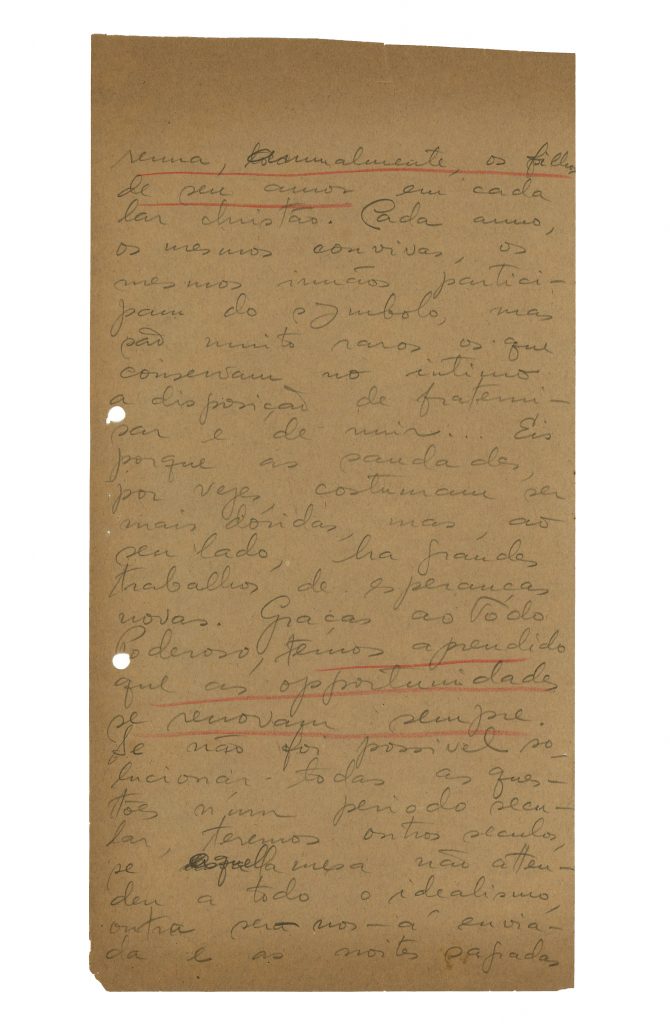 reuna, annualmente, os filhos
de seu amor em cada
lar christão. Cada anno,
os mesmos convivas, os
mesmos irmãos partici-
pam do symbolo, mas
são muito raros os que
conservam no intimo
a disposição de fraterni-
sar e de unir... Eis
porque as saudades,
por vezes, costumam ser
mais dóridas, mas, ao
seu lado, ha grandes
trabalhos de esperanças
novas. Graças ao Tódo
Poderoso, temos aprendido
que as opportunidades
se renovam sempre.
Se não foi possivel so-
lucionar todas as ques-
tões n'um periodo secu-
lar, teremos outros seculos,
se aquella mesa não atten-
deu a todo o idealismo,
outra ser-nos-á envia-
da e as noites sagradas